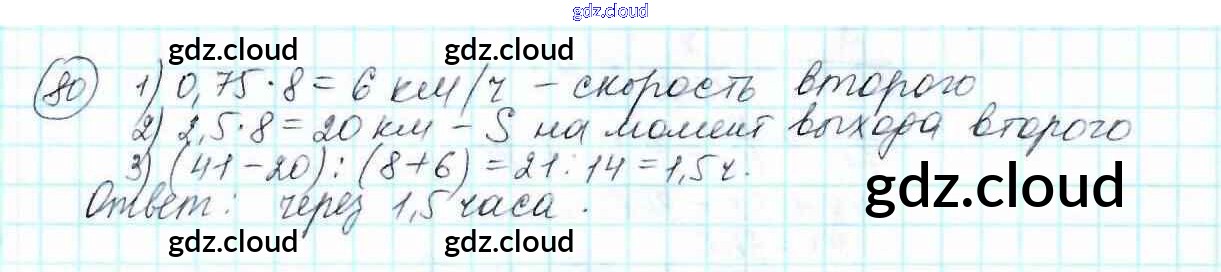 gdz.cloud
gdz.cloud gdz.cloud
80 1) 0,75·8=6 км/ч – скорость второго
2) 2,5·8=20 км – S на момент выхода второго
3) (41-20):(8+6)=21:14=1,5 ч.
gdz.cloud
Ответ: через 1,5 часа.
gdz.cloud gdz.cloud